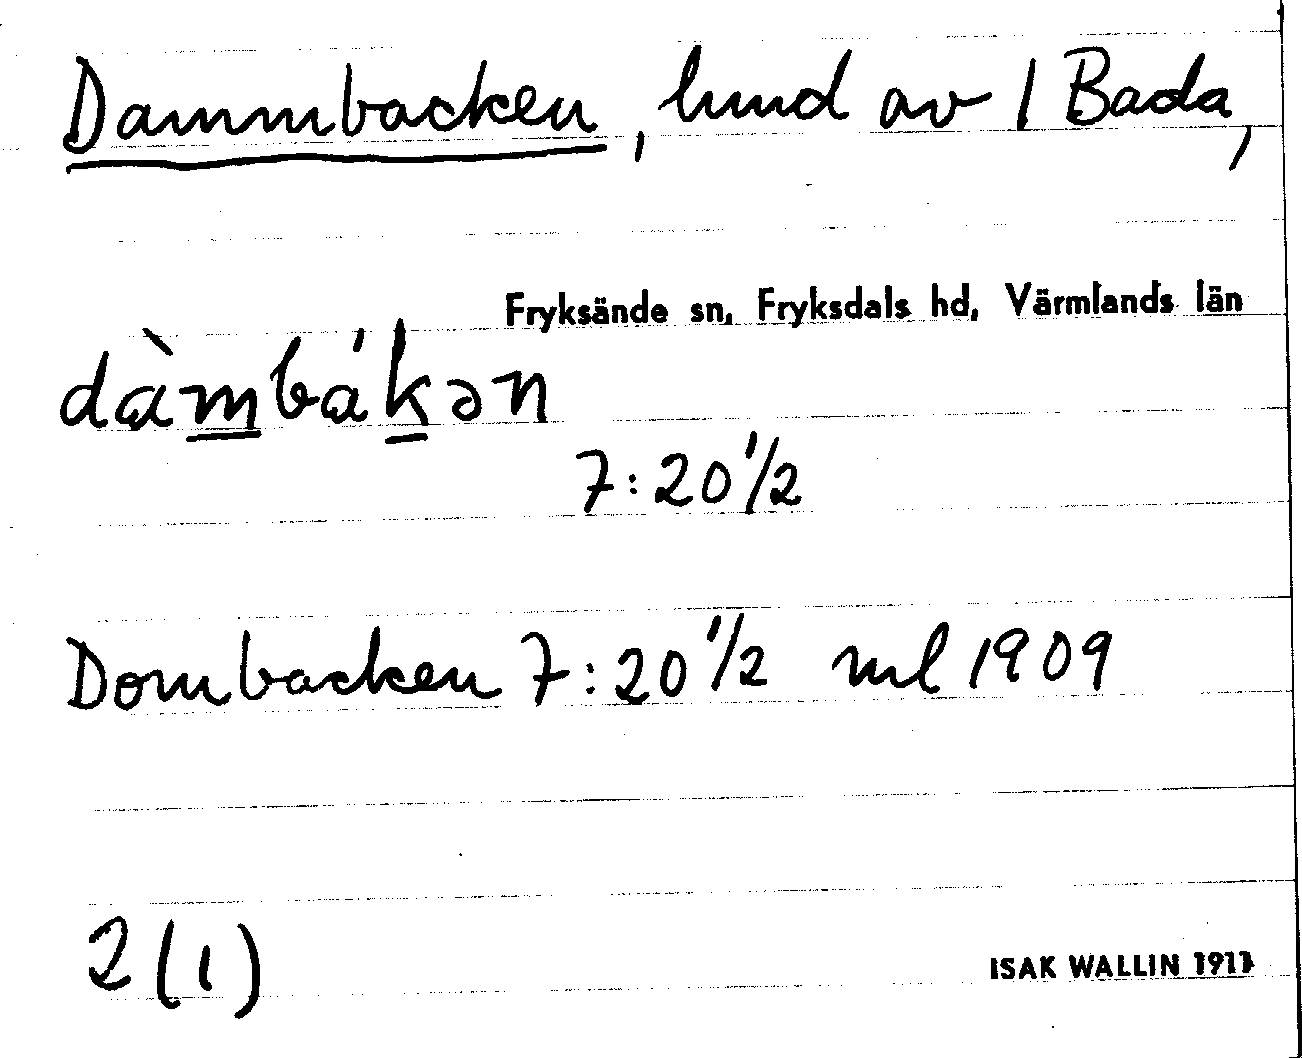 Dammbacken, hmd av 1 Bada,
Fryksände sn, Fryksdals hd, Värmlands län
dàmbákən
7:20 1/2
Dombacken 7:20 1/2 ml 1909
2(1)
ISAK WALLIN 1911